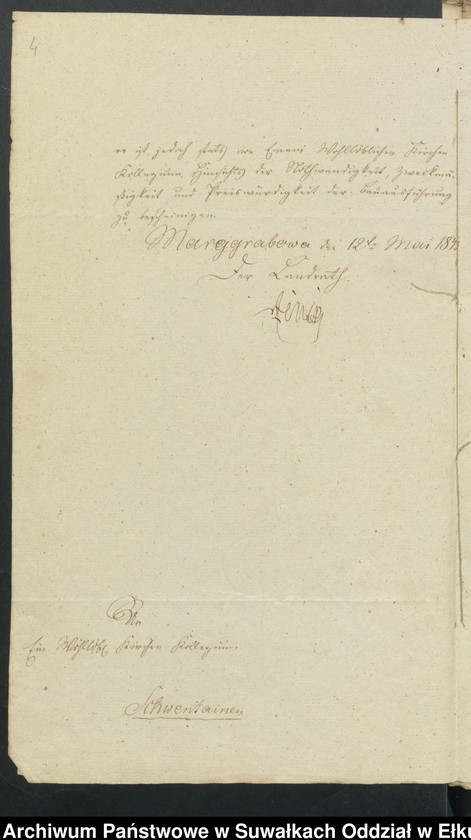 4
er ist jedoch stets von Einem Wohllöblichen Kirchen
Kollegium Hinsichts der Nothwendigkeit, Zweckmä-
ßigkeit und Preiswürdigkeit der Bauausführung
zu bescheinigen.
Marggrabowa den 12ten Mai
Der Landrath.
An
Ein Wohllöbl Kirchen Kollegium
Schwentainen
Archiwum Państwowe w Suwałkach Oddział w Ełku